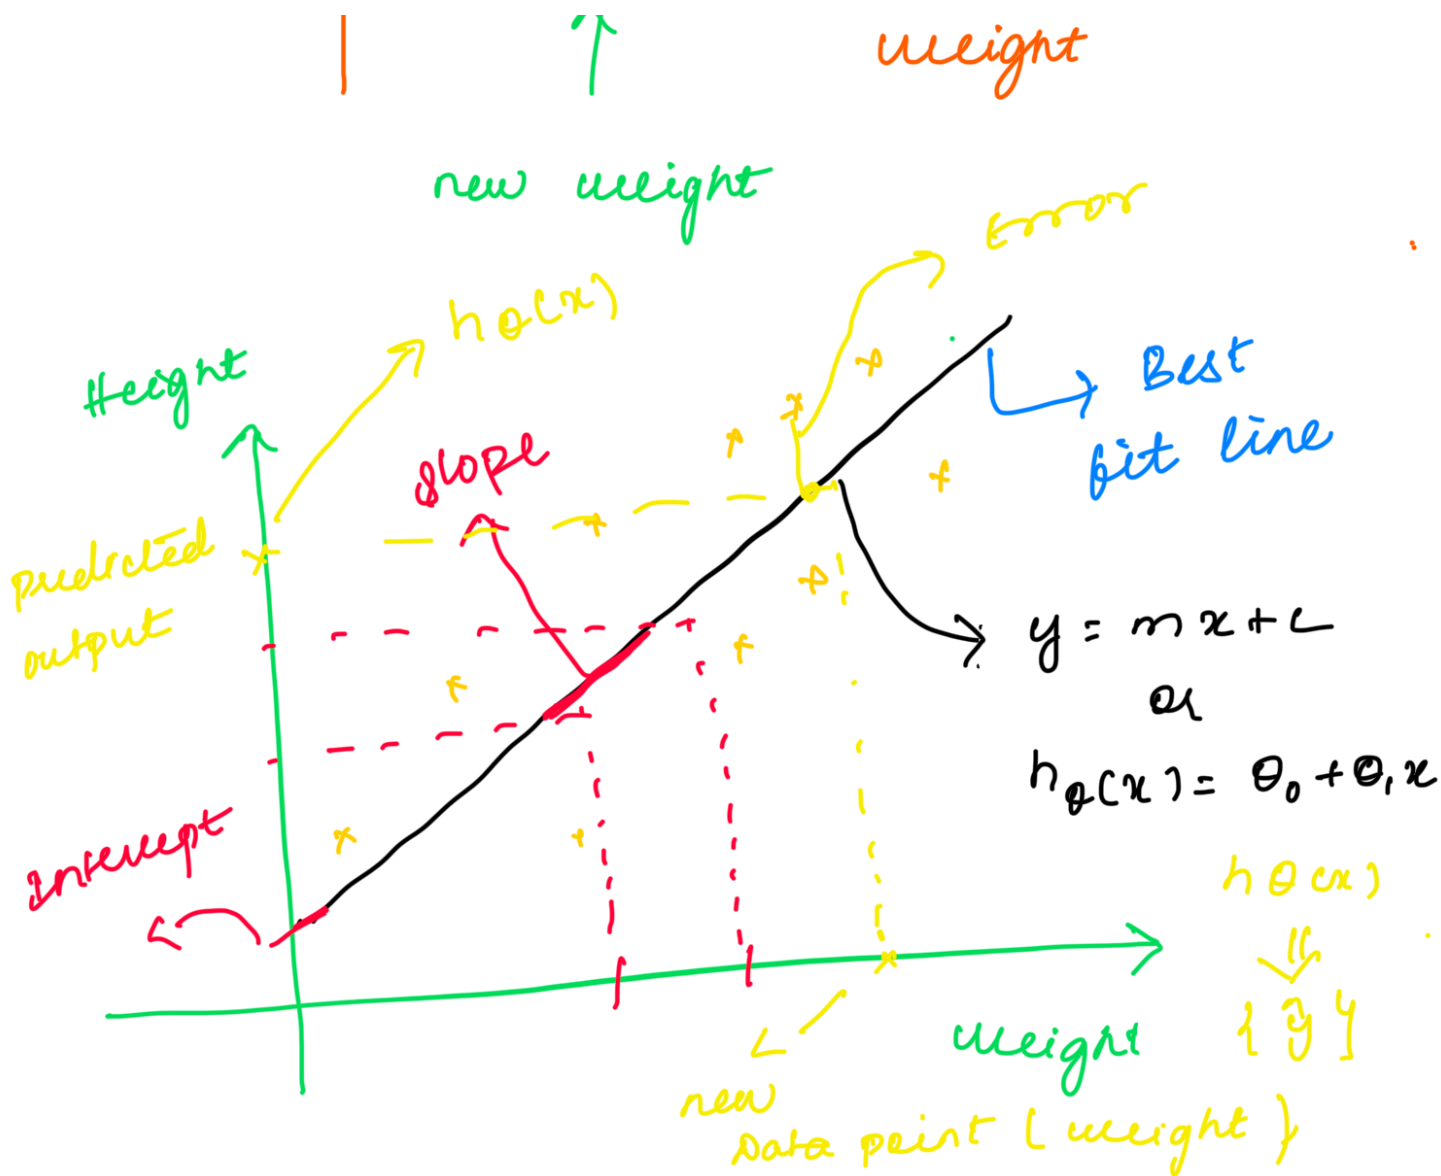 weight
new weight
Error
hθ(x)
Height
Best
fit line
slope
predicted
output
y = mx+c
or
hθ(x) = θ0 + θ1x
Intercept
hθ(x)
{ŷ}
weight
new
Data point (weight)